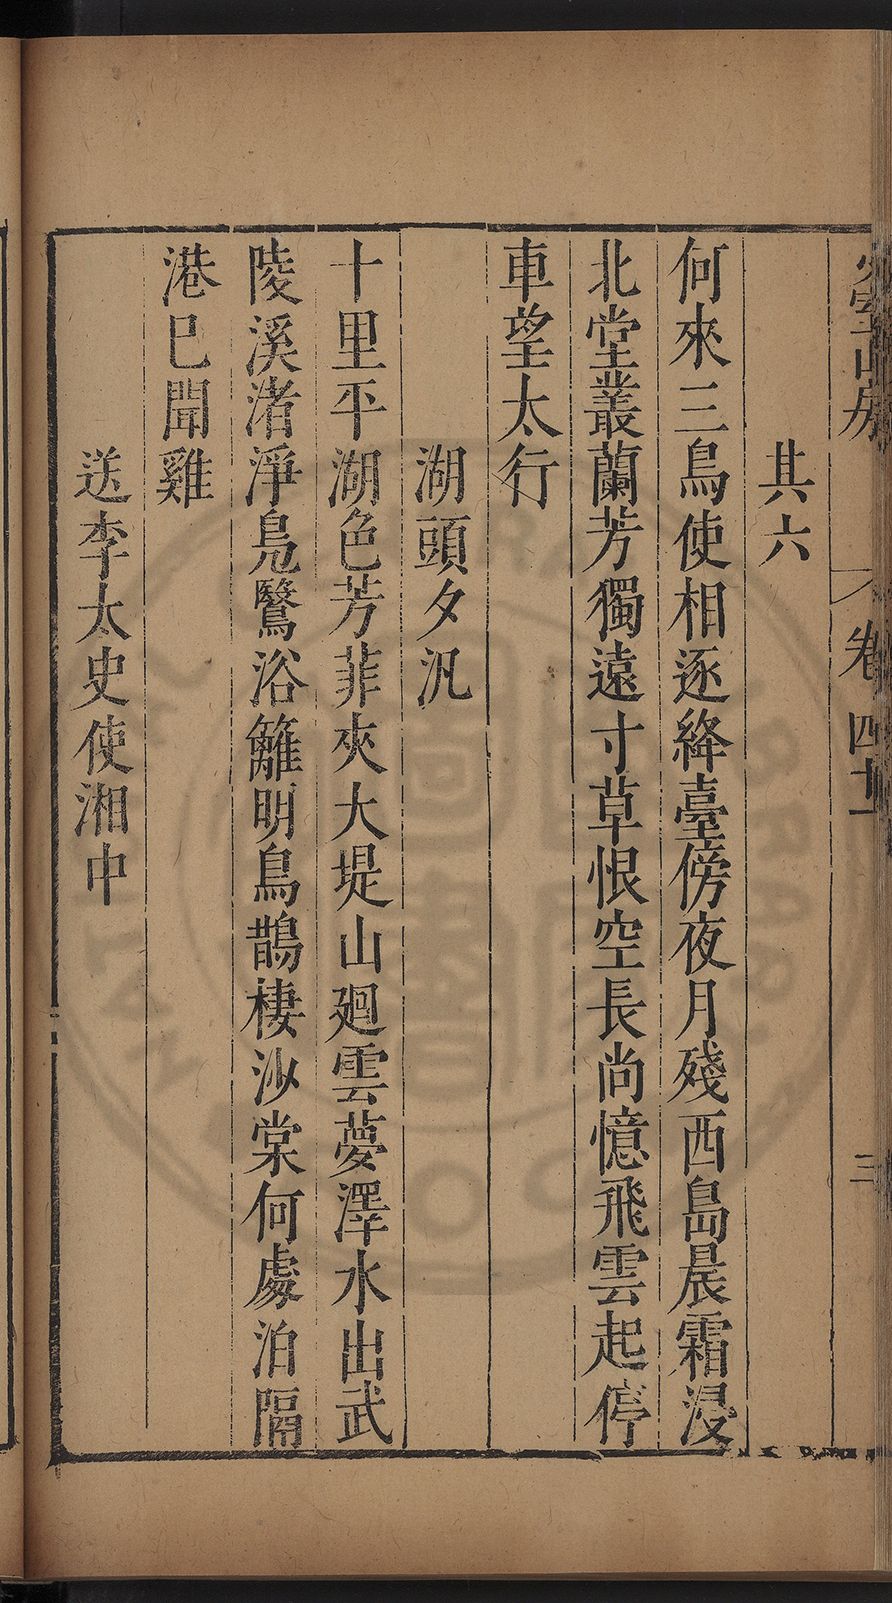 卷四十一
三
其六
何來三鳥使相逐絳臺傍夜月殘西島晨霜浸
北堂叢蘭芳獨遠寸草恨空長尚憶飛雲起停
車望太行
湖頭夕汎
十里平湖色芳菲夾大堤山廻雲夢澤水出武
陵溪渚淨鳧鷖浴籬明烏鵲棲沙棠何處泊隔
港巳聞雞
送李太史使湘中